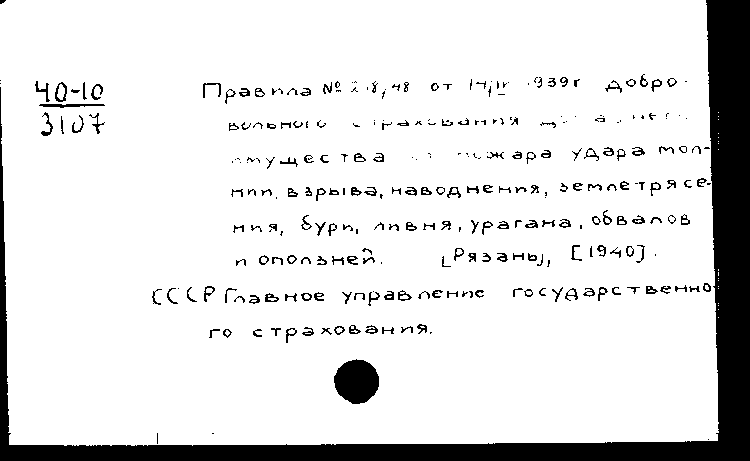 40-10
3107
Правила № от 1939 г добро-
вольного страхования
имущества от пожара удара мол-
нии, взрыва, наводнения, землетрясе-
ния, бури, ливня, урагана, обвалов
и оползней. [Рязань], [1940].
СССР Главное управление государственно-
го страхования.